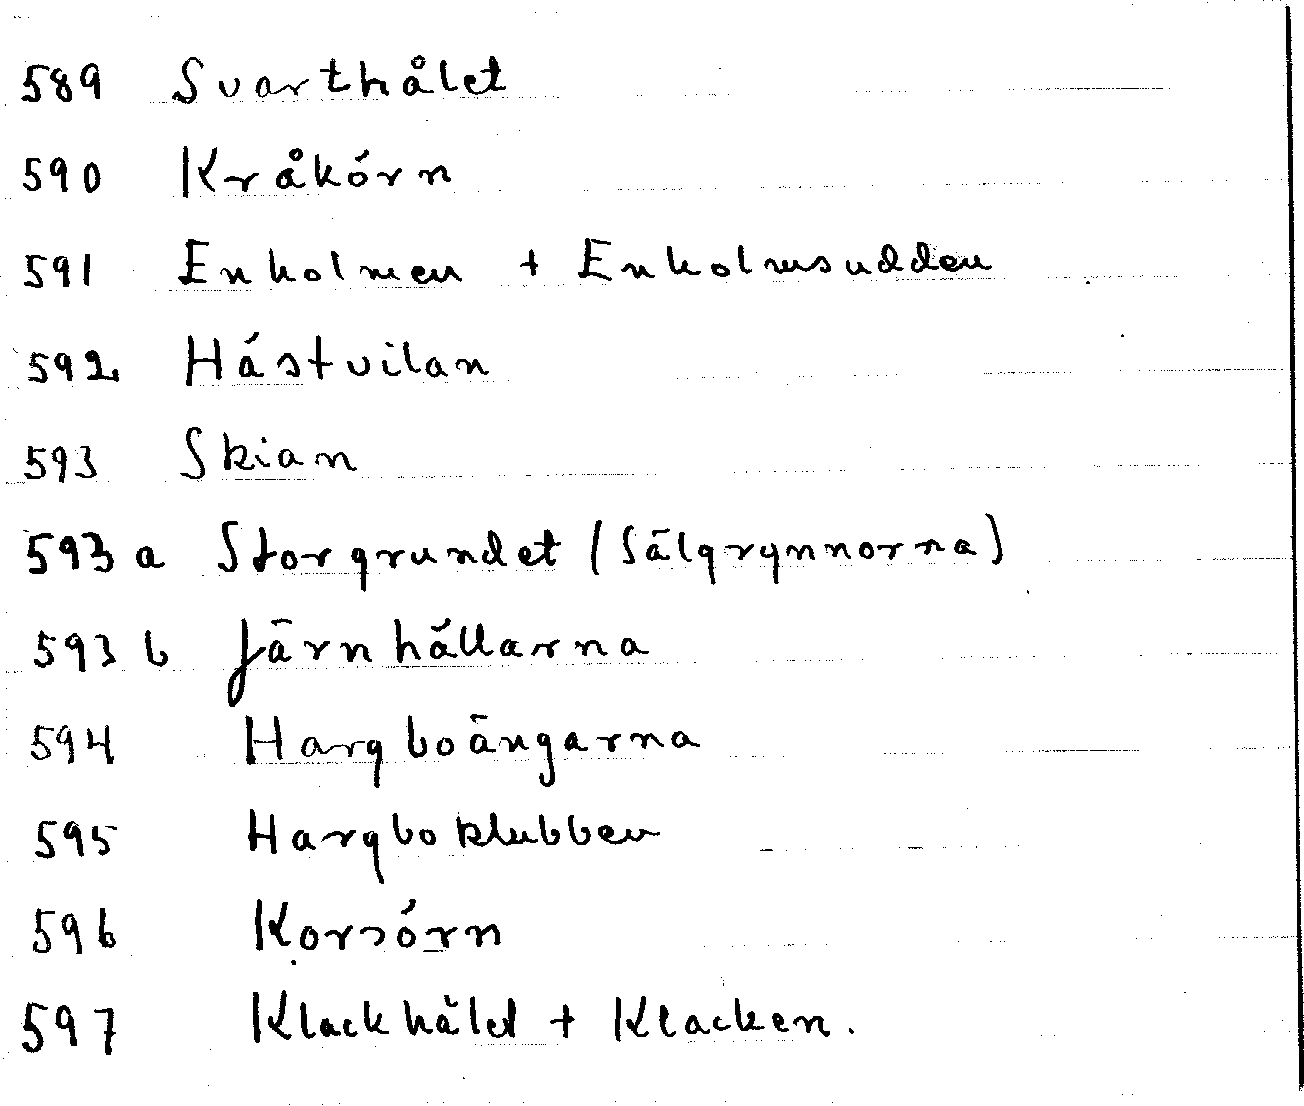 589 Svarthålet
590 Kråkörn
591 Enholmen + Enholmsudden
592 Hästvilan
593 Skian
593 a Storgrundet (Sälgrynnorna)
593 b Järnhällarna
594 Hargboängarna
595 Hargboklubben
596 Korsörn
597 Klackhålet + Klacken.